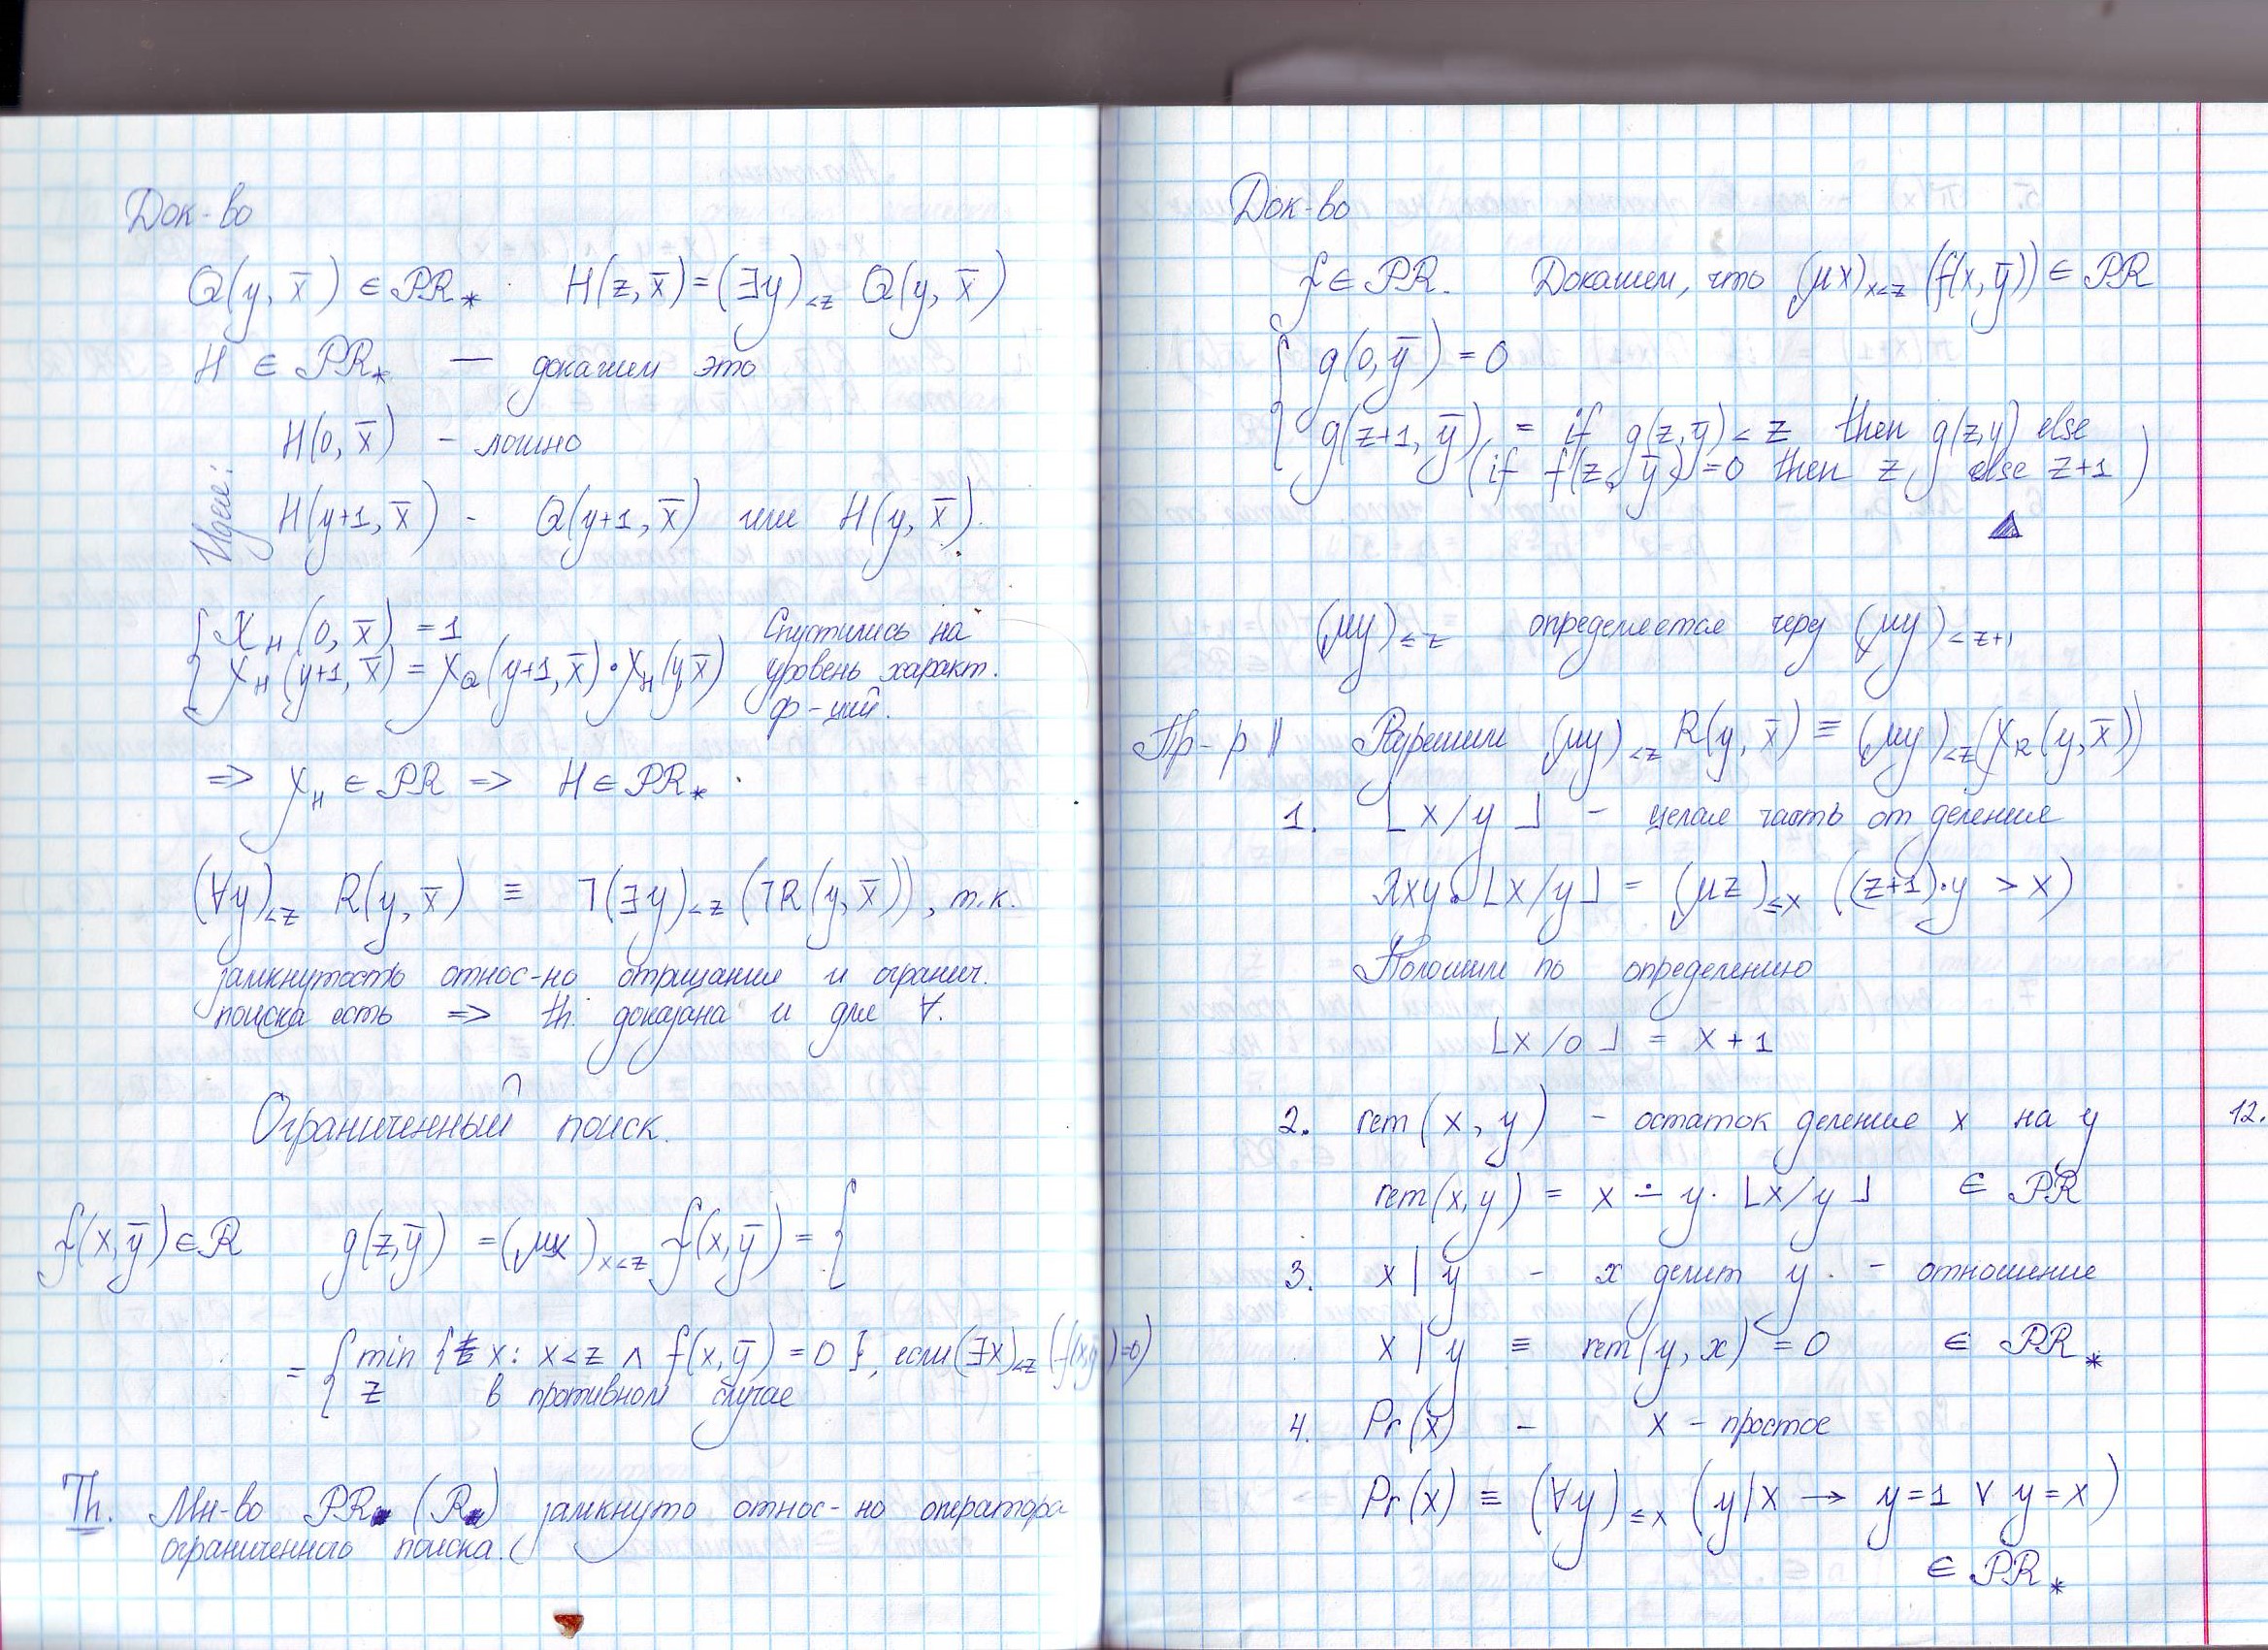 Док-во
Q(y, x̄) ∈ PR* . H(z, x̄) = (∃y)<z Q(y, x̄)
H ∈ PR* — докажем это
Идея:
H(0, x̄) - ложно
H(y+1, x̄) - Q(y+1, x̄) или H(y, x̄).
{ χH(0, x̄) = 1
χH(y+1, x̄) = χQ(y+1, x̄)·χH(y, x̄)
Спустились на
уровень характ.
ф-ций.
=> χH ∈ PR => H ∈ PR*.
(∀y)<z R(y, x̄) ≡ ¬(∃y)<z (¬R(y, x̄)), т.к.
замкнутость относ-но отрицания и огранич.
поиска есть => th. доказана и для ∀.
Ограниченный поиск.
f(x, ȳ) ∈ R g(z, ȳ) = (μx)x<z f(x, ȳ) = {
= { min { x: x<z ∧ f(x, ȳ) = 0 }, если (∃x)<z (f(x, ȳ)=0)
z в противном случае
Th. Мн-во PR (R) замкнуто относ-но оператора
ограниченного поиска.
Док-во
f ∈ PR. Докажем, что (μx)x<z (f(x, ȳ)) ∈ PR
{ g(0, ȳ) = 0
g(z+1, ȳ) = if g(z, ȳ) < z then g(z, y) else
(if f(z, ȳ) = 0 then z else z+1)
(μy)≤z определяется через (μy)<z+1
Пр-р || Разрешим (μy)<z R(y, x̄) ≡ (μy)<z (χR(y, x̄))
1. ⌊x/y⌋ - целая часть от деления
λxy.⌊x/y⌋ = (μz)≤x ((z+1)·y > x)
Положим по определению
⌊x/0⌋ = x+1
2. rem(x, y) - остаток деления x на y
12.
rem(x, y) = x ∸ y·⌊x/y⌋ ∈ PR
3. x | y - x делит y. - отношение
x | y ≡ rem(y, x) = 0 ∈ PR*
4. Pr(x) - x - простое
Pr(x) ≡ (∀y)≤x (y|x → y=1 ∨ y=x)
∈ PR*